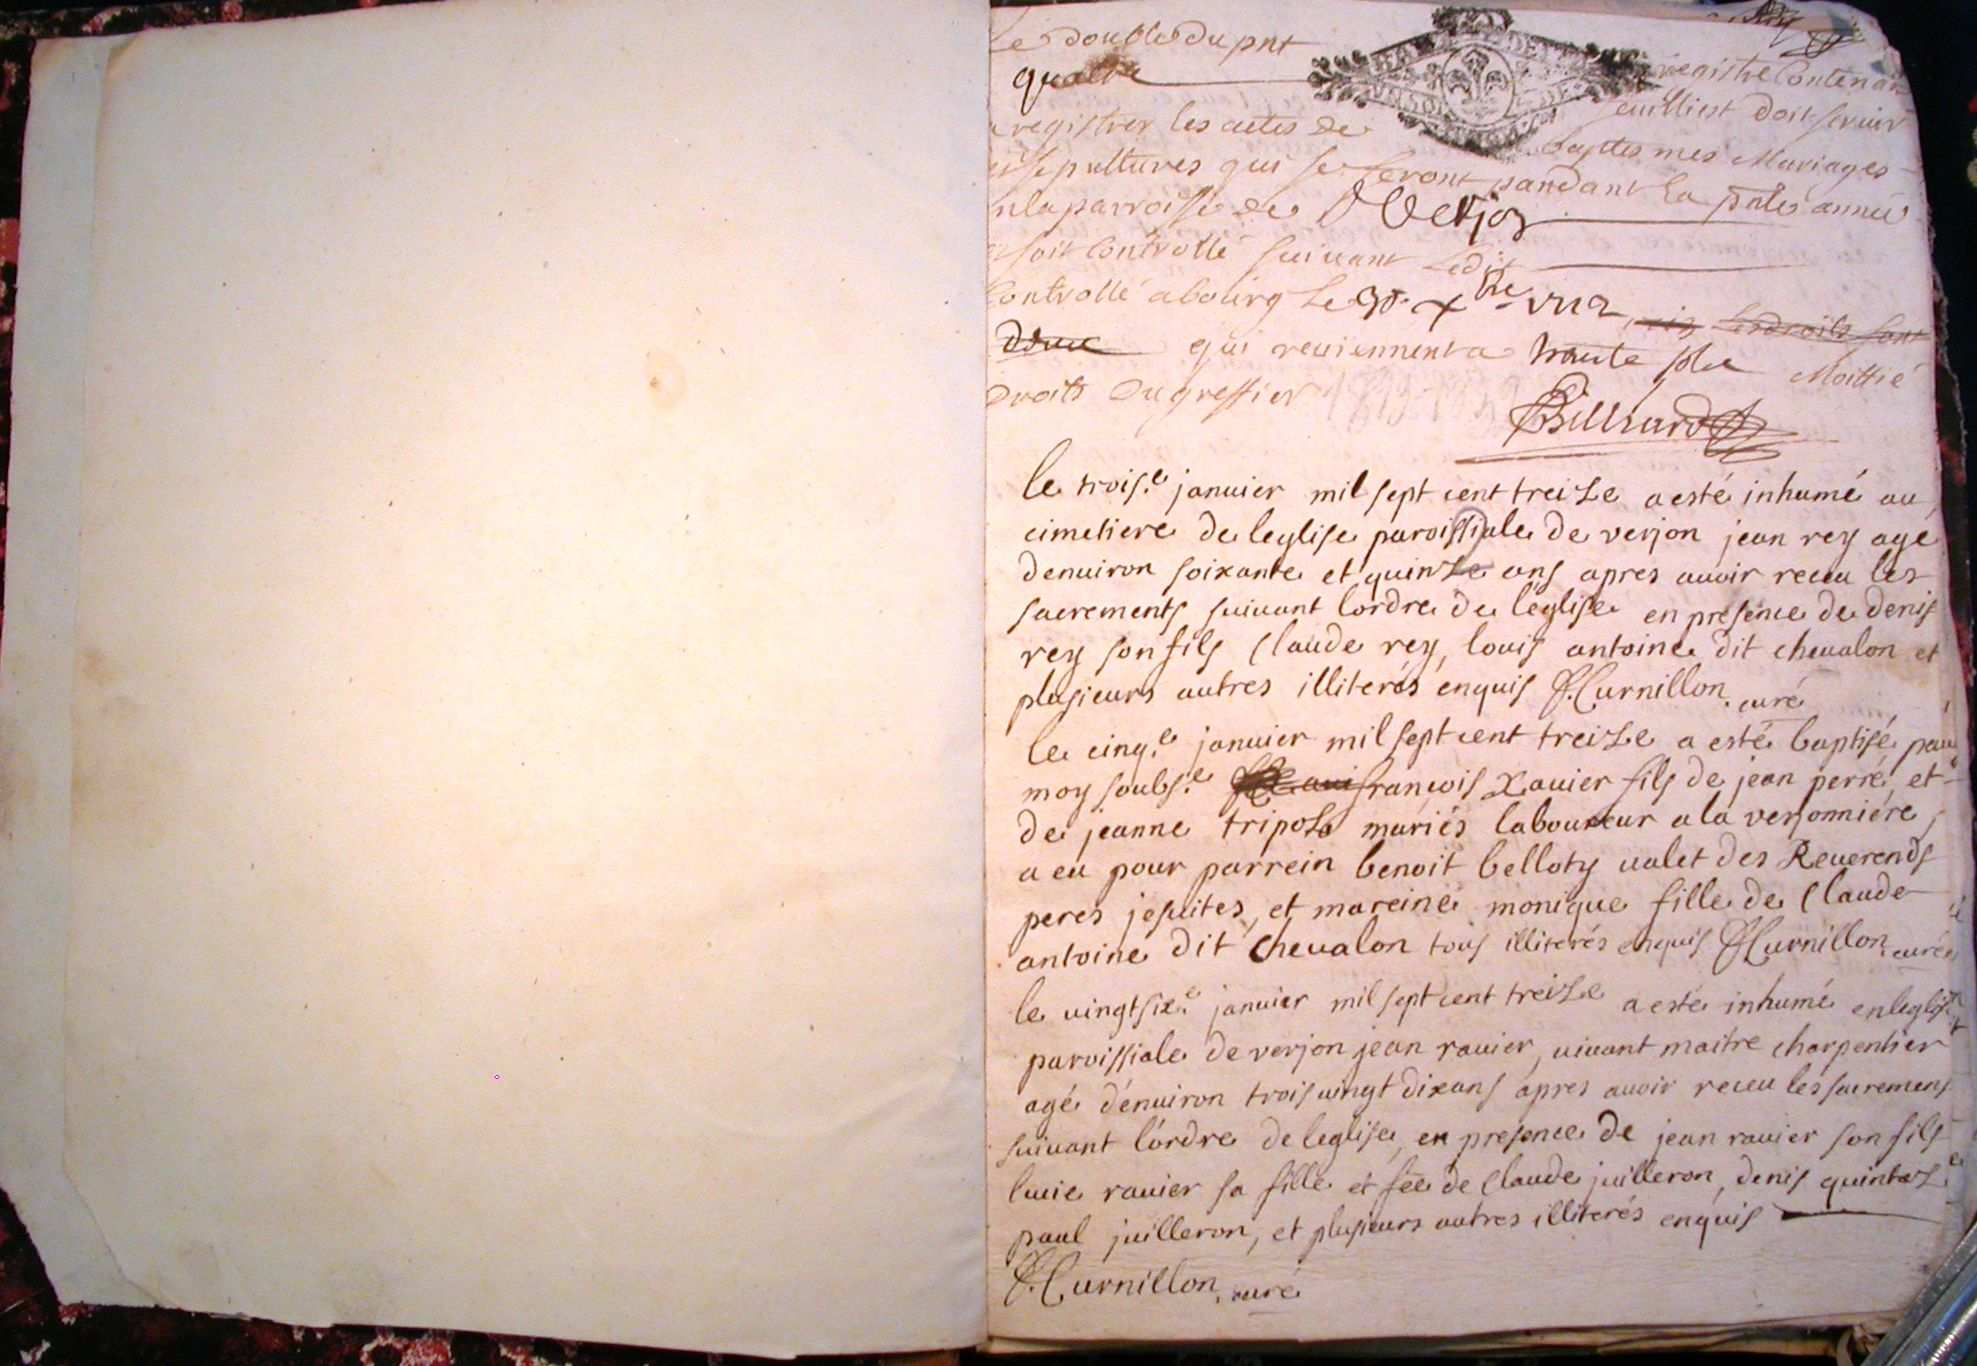 Le double du pnt registre Contenant
quatre feuilliest doit servir
a registrer les actes de baptes mes Mariages
et sepultures qui se feront pandant la pnte année
en la parroisse de Verjon
et soit Controllé suivant Ledit
Controllé a bourg Le 30. Xbre 1712 les droits sont
douze qui reviennent a trante sols Moittié
Droits du greffier
Billiard
le trois.e januier mil sept cent treize a esté inhumé au
cimetiere de leglise paroissiale de verjon jean rey agé
denuiron soixante et quinze ans apres auoir receu les
sacrements suiuant lordre de l'église en presence de denis
rey son fils Claude rey, louis antoine dit cheualon et
plusieurs autres illiterés enquis Curnillon curé
le cinq.e januier mil sept cent treize a esté baptisé par
moy soubs.e françois Xauier fils de jean perré, et
de jeanne tripoz mariés laboureur a la verjonniére,
a eu pour parrein benoit belloty ualet des Reuerends
peres jesuites, et mareine monique fille de Claude
antoine dit Cheualon tous illiterés enquis Curnillon curé
le uingtsix.e januier mil sept cent treize a esté inhumé en leglise
paroissiale de verjon jean rauier, uiuant maitre charpentier
agé dénuiron trois uingt dix ans apres auoir receu les sacremens
suiuant l'ordre de leglise, en presence de jean rauier son fils
lucie rauier sa fille et fée de Claude juilleron, denis quintaz
paul juilleron, et plusieurs autres illiterés enquis
Curnillon curé